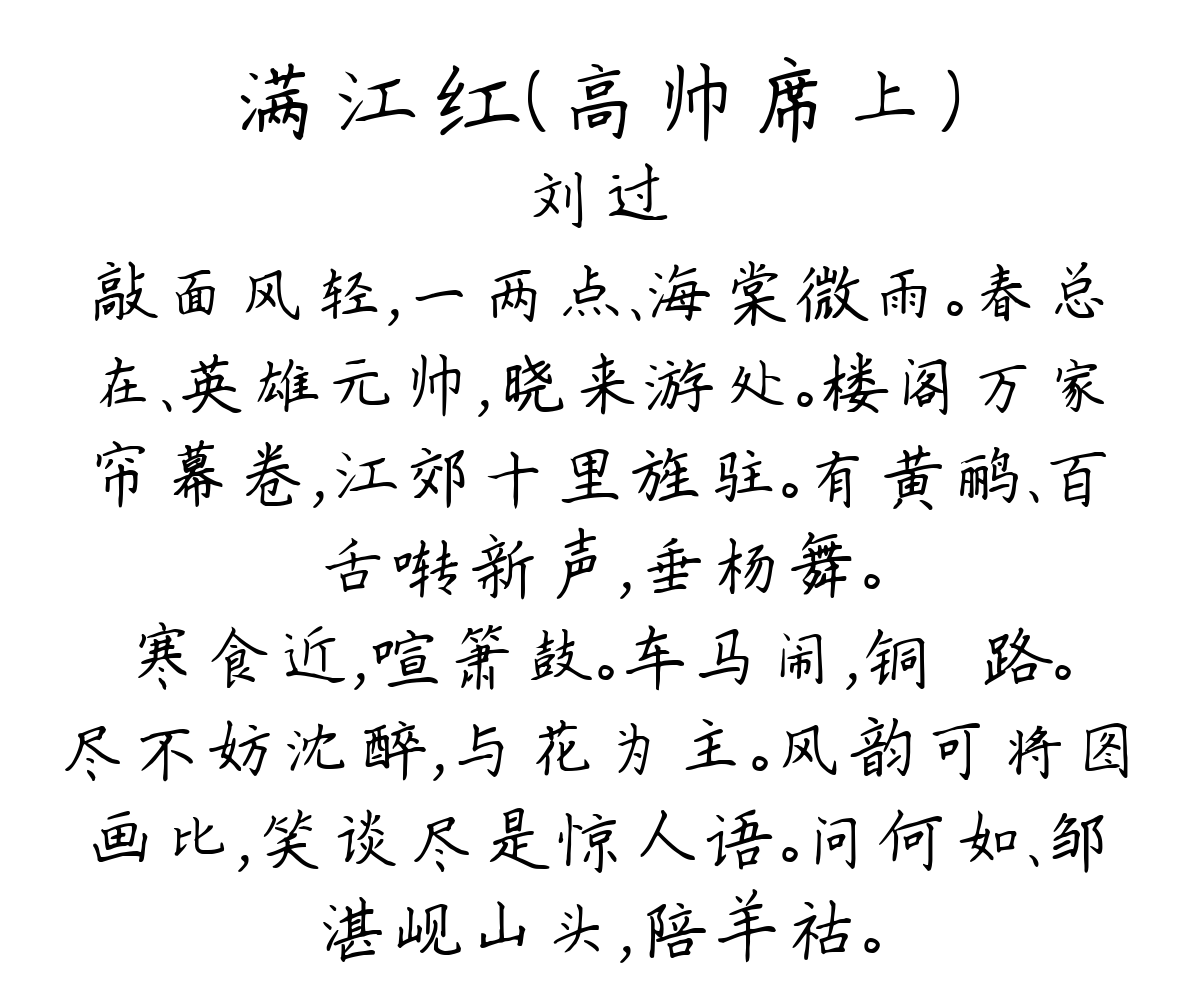 满江红(高帅席上)
刘过
敲面风轻,一两点、海棠微雨。春总
在、英雄元帅,晓来游处。楼阁万家
帘幕卷,江郊十里旌驻。有黄鹂、百
舌啭新声,垂杨舞。
寒食近,喧箫鼓。车马闹,铜 路。
尽不妨沈醉,与花为主。风韵可将图
画比,笑谈尽是惊人语。问何如、邹
湛岘山头,陪羊祜。